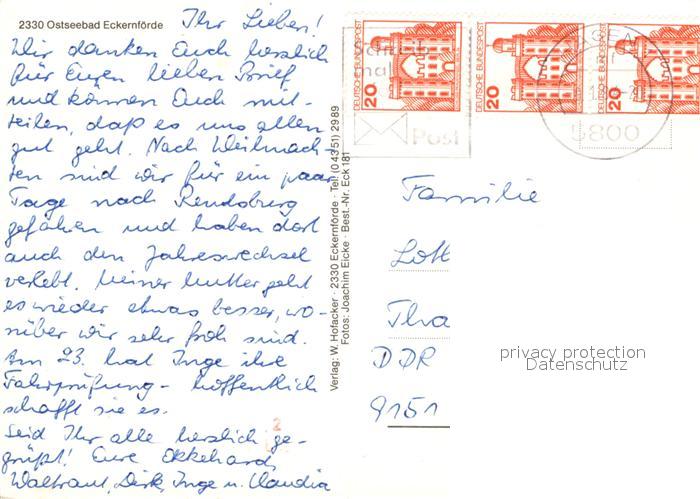 2330 Ostseebad Eckernförde
Ihr Lieben!
Wir danken Euch herzlich
für Euren lieben Brief
und können Euch mit-
teilen, daß es uns allen
gut geht. Nach Weihnach-
ten sind wir für ein paar
Tage nach Rendsburg
gefahren und haben dort
auch den Jahreswechsel
verlebt. Meiner Mutter geht
es wieder etwas besser, wo-
rüber wir sehr froh sind.
Am 23. hat Inge ihre
Fahrprüfung - hoffentlich
schafft sie es.
Seid Ihr alle herzlich ge-
grüßt! Eure Ekkehard,
Waltraut, Dirk, Inge u. Claudia
2
Verlag: W. Hofacker · 2330 Eckernförde · Tel. (04351) 2989
Fotos: Joachim Eicke · Best.-Nr. Eck 181
DEUTSCHE BUNDESPOST
20
DEUTSCHE BUNDESPOST
20
DEUTSCHE BUNDESPOST
20
Post
HAGEN
5800
Familie
Lott
Tha
DDR
9151
privacy protection
Datenschutz